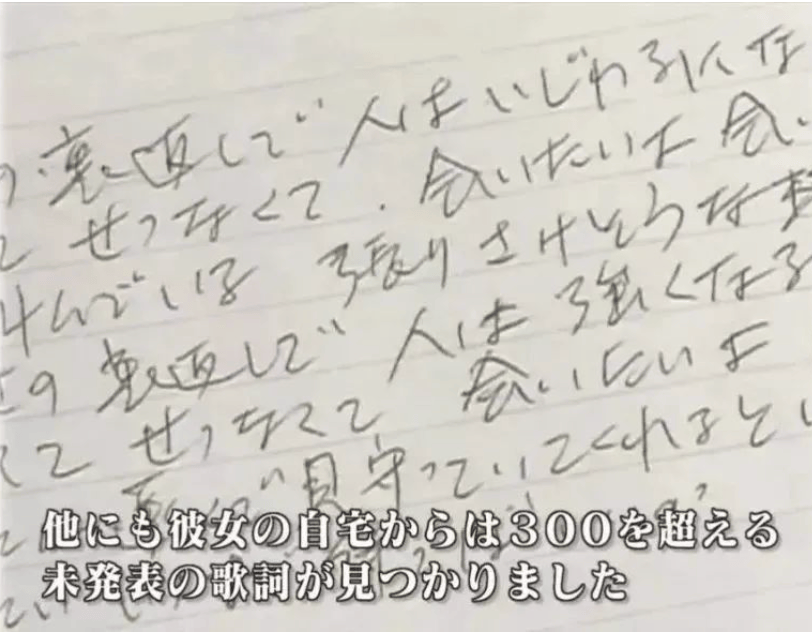 の裏返しで 人はいじわるにな
て せつなくて．会いたいよ 会い
叫んでいる 張りさけそうな
の裏返しで 人は強くなる
くて せつなくて 会いたいよ
で見守っていてくれると
他にも彼女の自宅からは３００を超える
未発表の歌詞が見つかりました